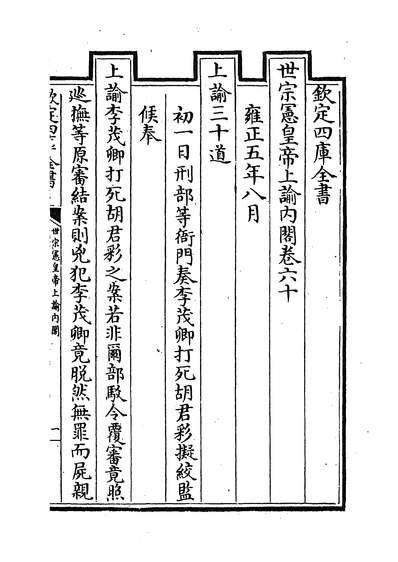 欽定四庫全書
世宗憲皇帝上諭內閣卷六十
雍正五年八月
上諭三十道
初一日刑部等衙門奏李茂卿打死胡君彩擬絞監
候奉
上諭李茂卿打死胡君彩之案若非爾部駁令覆審竟照
廵撫等原審結案則兇犯李茂卿竟脫然無罪而屍親
欽定四庫全書
世宗憲皇帝上諭內閣
一